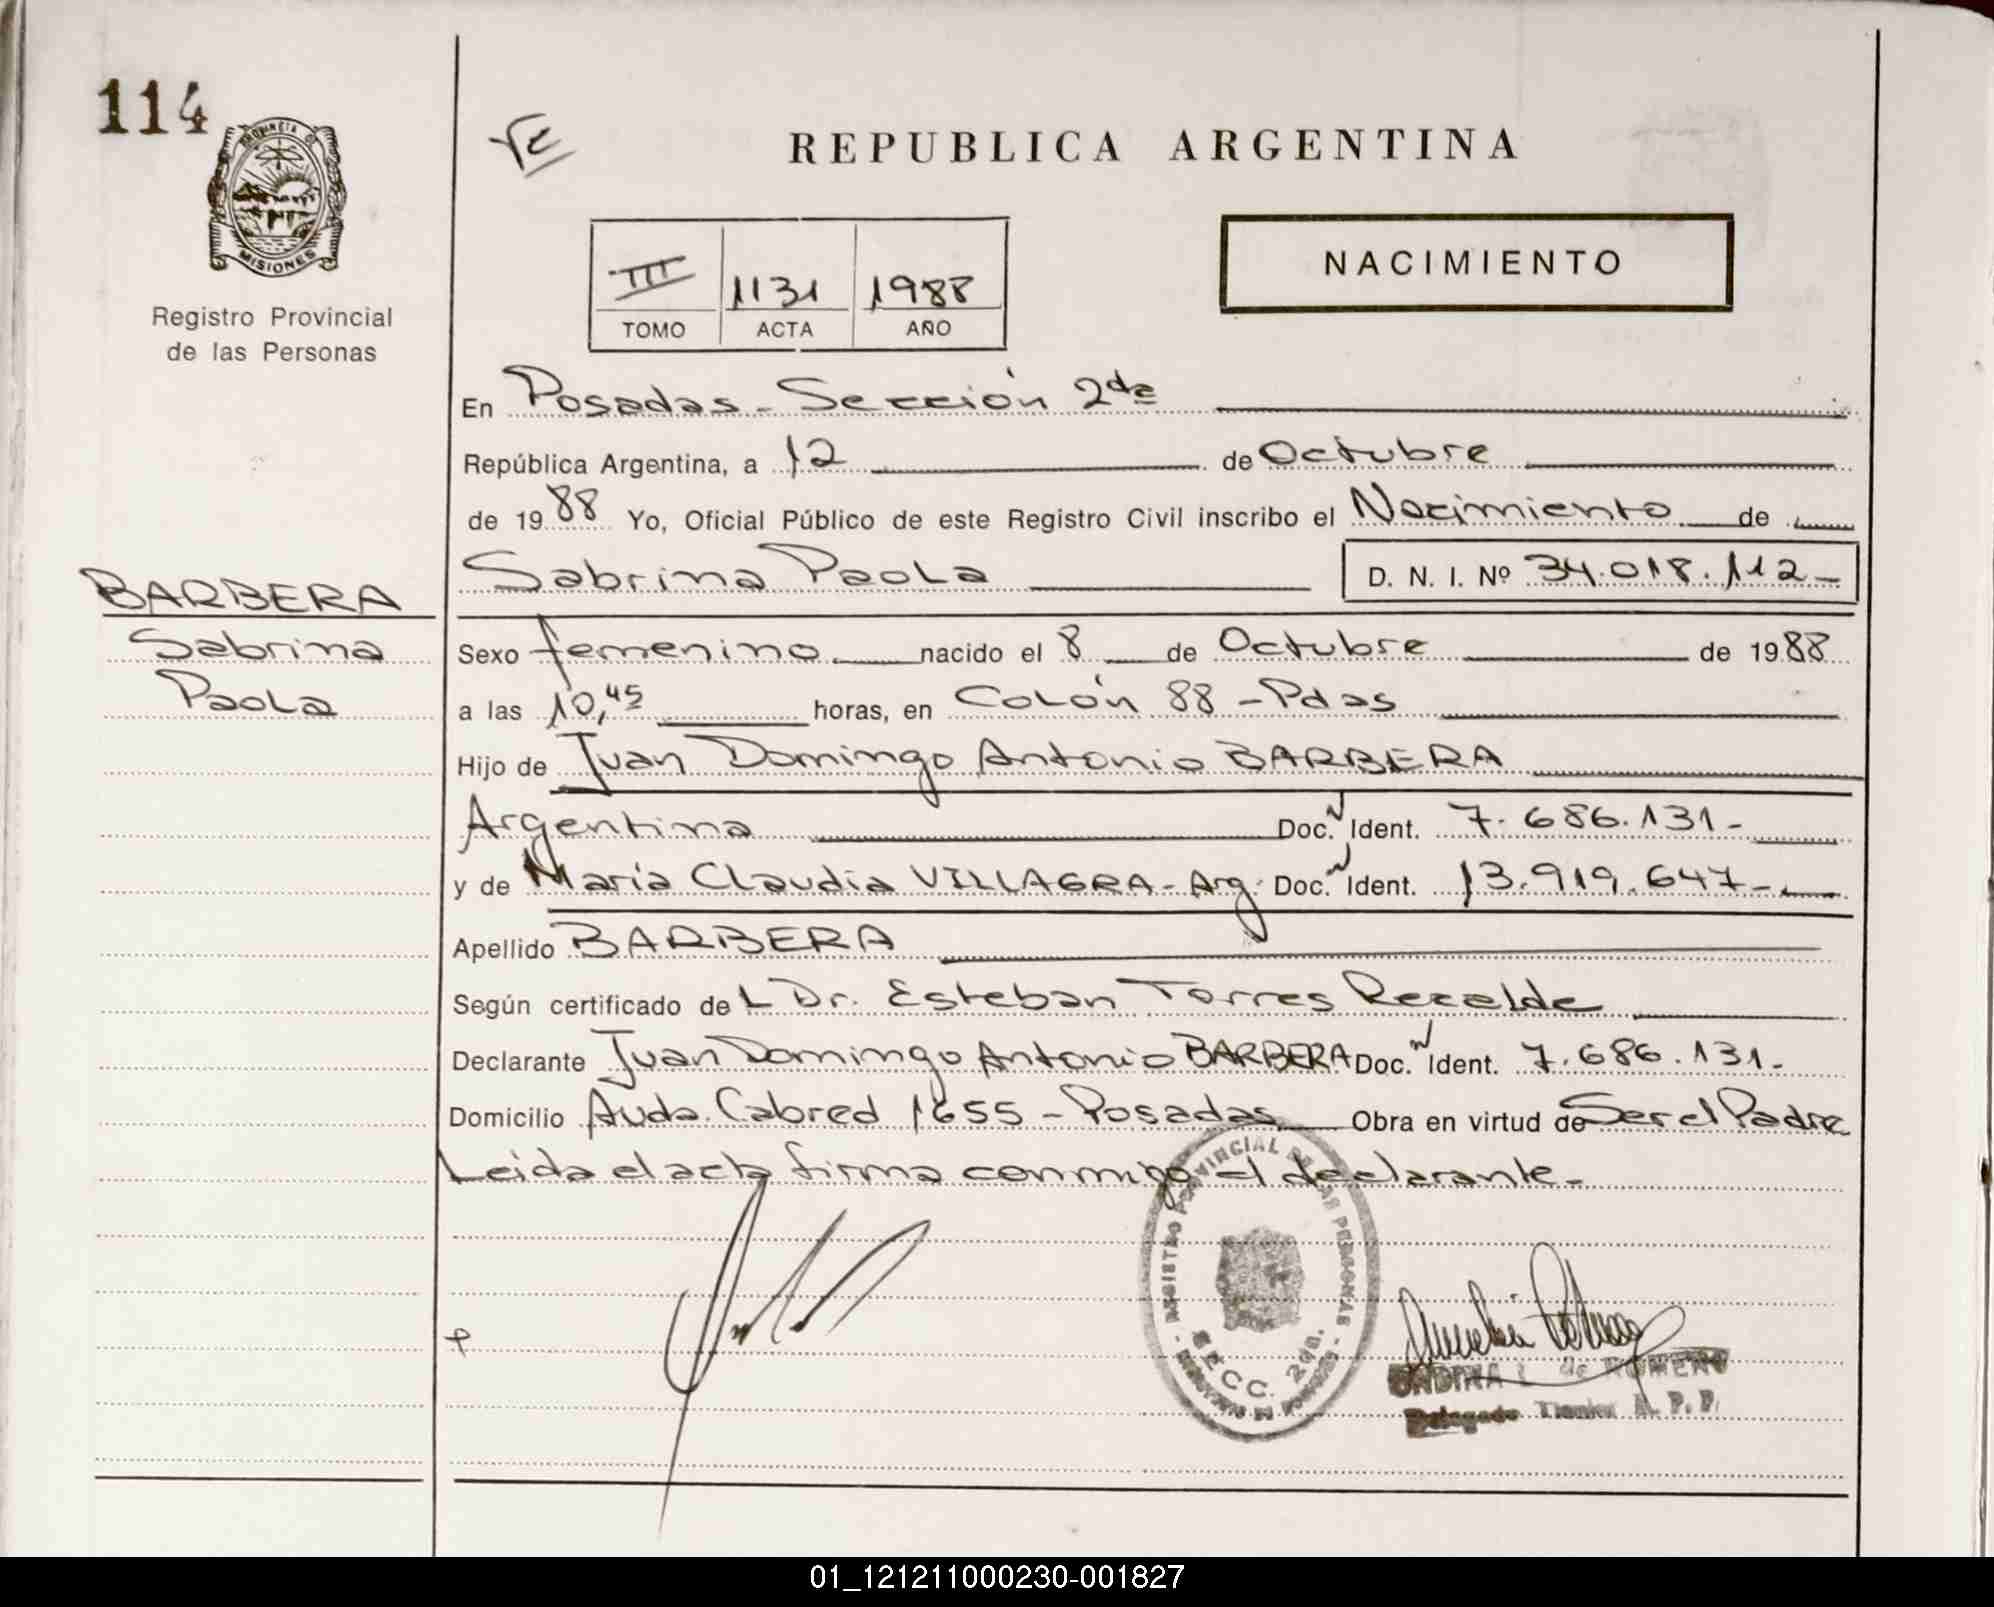 114
PROVINCIA DE
MISIONES
Registro Provincial
de las Personas
REPUBLICA ARGENTINA
NACIMIENTO
III 1131 1988
TOMO ACTA AÑO
En Posadas - Sección 2da
República Argentina, a 12 de Octubre
de 1988 Yo, Oficial Público de este Registro Civil inscribo el Nacimiento de
Sabrina Paola D. N. I. Nº 34.018.112-
BARBERA
Sabrina
Paola
Sexo femenino nacido el 8 de Octubre de 1988
a las 10,45 horas, en Colón 88 - Pdas
Hijo de Juan Domingo Antonio BARBERA
Argentina Doc. N Ident. 7.686.131-
y de María Claudia VILLAGRA - Arg. Doc. N Ident. 13.919.647-
Apellido BARBERA
Según certificado de L Dr. Esteban Torres Recalde
Declarante Juan Domingo Antonio BARBERA Doc. N Ident. 7.686.131-
Domicilio Avda. Cabred 1655 - Posadas Obra en virtud de Ser el Padre
Leida el acta firma conmigo el declarante -
REGISTRO PROVINCIAL DE LAS PERSONAS
SECC. 2da.
ONDINA L. de ROMERO
Delegado Titular R. P. P.
01_121211000230-001827